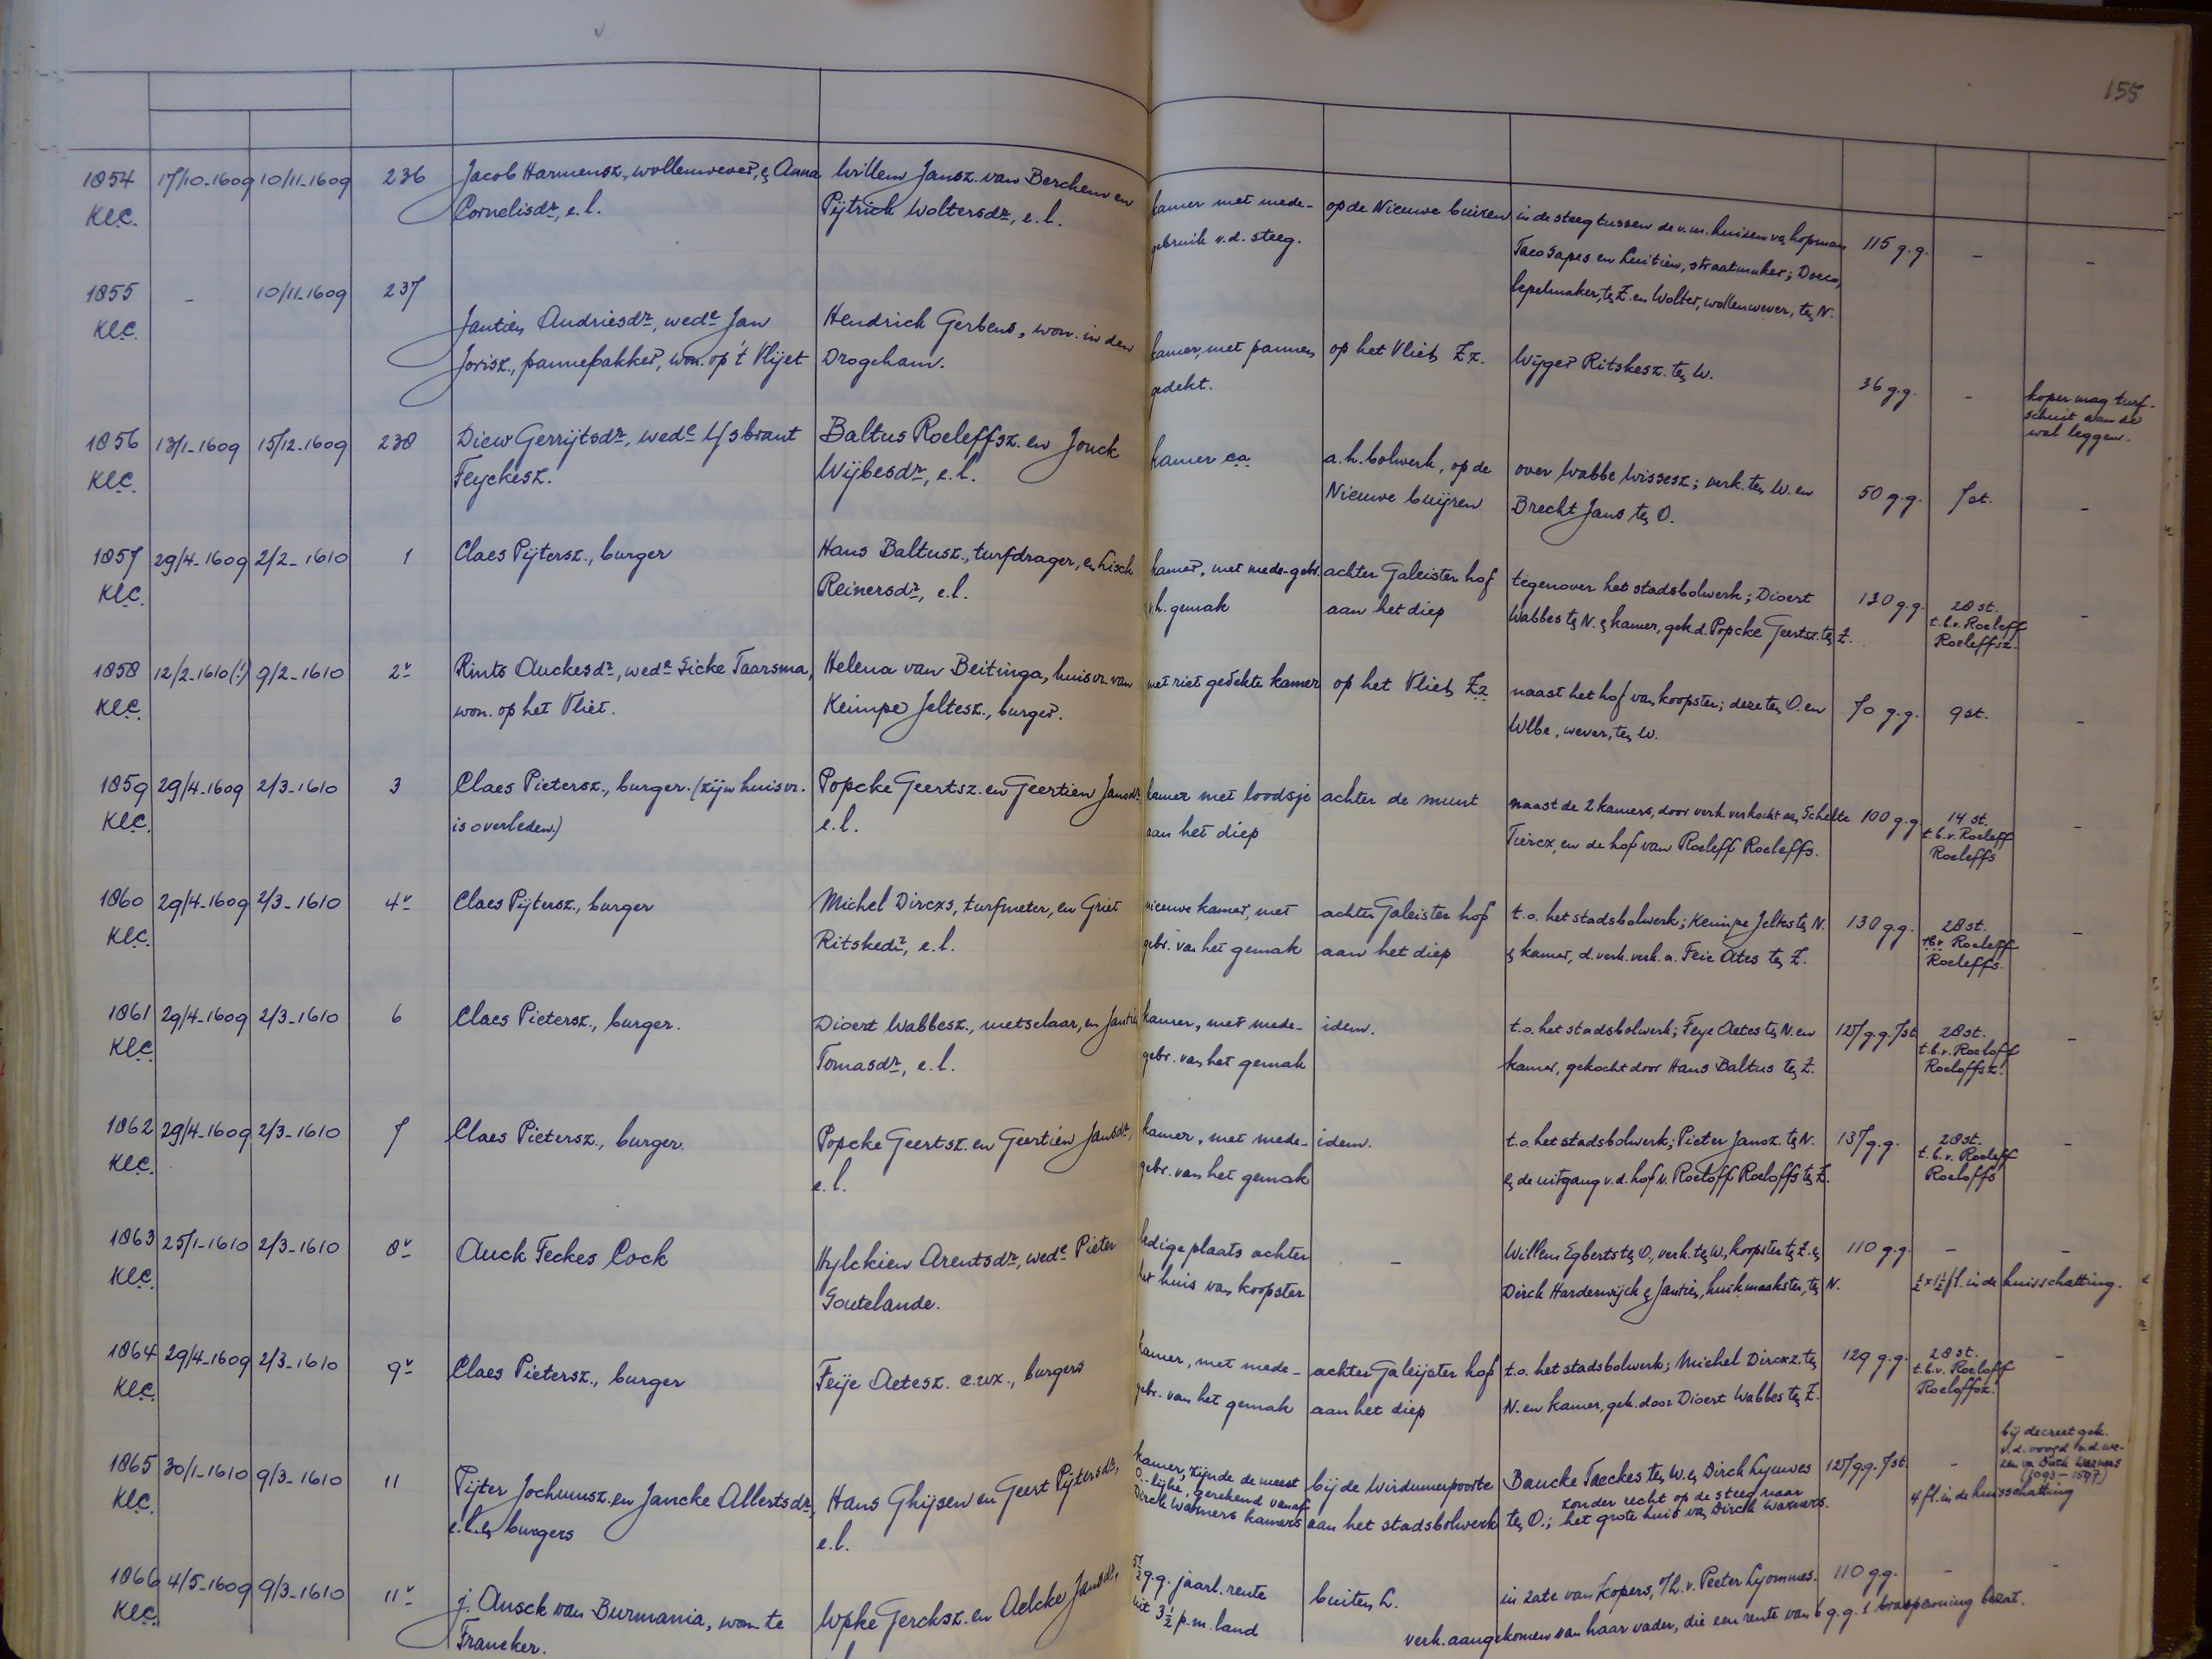 155
1854 17/10-1609 10/11-1609 236 Jacob Harmensz., wollenwever, en Anna Willem Jansz. van Berchem en kamer met mede- op de Nieuwe buiren in de steeg tussen de v.m. huisen van hopman 115 g.g. - -
KLC. Cornelisdr, e.l. Pijtrick Woltersdr, e.l. gebruik v.d. steeg. Taco Sapes en Luitien, straatmaker; Doeco,
lepelmaker, ten Z. en Wolter, wollenwever, ten N.
1855 - 10/11-1609 237
KLC. Jantien Andriesdr, wede Jan Hendrick Gerbens, won. in den kamer, met pannen op het Vliet Zz. Wijger Ritskesz. ten W. 36 g.g. - koper mag turf-
Jorisz., pannebakker, won. op 't Vlijet Drogeham. gedekt. schuit aan de
wal leggen.
1856 13/1-1609 15/12-1609 238 Diew Gerrijtsdr, wede IJsbrant Baltus Roeleffsz. en Jouck kamer ca a.h. bolwerk, op de over Wabbe Wissesz.; verk. ten W. en 50 g.g. 7 st. -
KLC. Feyckesz. Wijbesdr, e.l. Nieuwe buijren Brecht Jans ten O.
1857 29/4-1609 2/2-1610 1 Claes Pijtersz., burger Hans Baltusz., turfdrager, en Lisck kamer, met mede-gebr. achter Galeister hof tegenover het stadsbolwerk; Dioert 130 g.g. 28 st. -
KLC. Reinersdr, e.l. v.h. gemak aan het diep Wabbes ten N. en kamer, gek. d. Popcke Geertsz. ten Z. t.b.v. Roeleff
Roeleffsz.
1858 12/2-1610 (!) 9/2-1610 2v Rints Auckesdr, wede Sicke Taarsma, Helena van Beitinga, huisvr. van met riet gedekte kamer op het Vliet Zz naast het hof van koopster; deze ten O. en 70 g.g. 9 st. -
KLC. won. op het Vliet. Keimpe Jeltesz., burger. Wlbe, wever, ten W.
1859 29/4-1609 2/3-1610 3 Claes Pietersz., burger. (zijn huisvr. Popcke Geertsz. en Geertien Jansdr, kamer met loodsje achter de munt naast de 2 kamers, door verk. verkocht aan Schelte 100 g.g. 14 st. -
KLC. is overleden.) e.l. aan het diep Tiercx, en de hof van Roeleff Roeleffs. t.b.v. Roeleff
Roeleffs
1860 29/4-1609 2/3-1610 4v Claes Pijtersz., burger Michel Dircxs, turfmeter, en Griet nieuwe kamer, met achter Galeister hof t.o. het stadsbolwerk; Keimpe Jeltes ten N. 130 g.g. 28 st. -
KLC. Ritskedr, e.l. gebr. van het gemak aan het diep en kamer, d. verk. verk. a. Feie Ates ten Z. t.b.v. Roeleff
Roeleffs.
1861 29/4-1609 2/3-1610 6 Claes Pietersz., burger. Dioert Wabbesz., metselaar, en Jantien kamer, met mede- idem. t.o. het stadsbolwerk; Feye Aetes ten N. en 127 g.g. 7 st. 28 st. -
KLC. Tomasdr, e.l. gebr. van het gemak kamer, gekocht door Hans Baltus ten Z. t.b.v. Roeloff
Roeloffsz.
1862 29/4-1609 2/3-1610 7 Claes Pietersz., burger. Popcke Geertsz. en Geertien Jansdr, kamer, met mede- idem. t.o. het stadsbolwerk; Pieter Jansz. ten N. 137 g.g. 28 st. -
KLC. e.l. gebr. van het gemak en de uitgang v.d. hof v. Roeloff Roeloffs ten Z. t.b.v. Roeleff
Roeloffs
1863 25/1-1610 2/3-1610 8v Auck Feckes Cock Hylckien Arentsdr, wede Pieter ledige plaats achter - Willem Egberts ten O., verk. ten W., koopster ten Z. en 110 g.g. - -
KLC. Goutelande. het huis van koopster Dirck Harderwijck en Jantien, huikmaakster, ten N. ½ x 1½ fl. in de huisschatting.
1864 29/4-1609 2/3-1610 9v Claes Pietersz., burger Feije Aetesz. c.ux., burgers kamer, met mede- achter Galeijster hof t.o. het stadsbolwerk; Michel Dircxz. ten 129 g.g. 28 st. -
KLC. gebr. van het gemak aan het diep N. en kamer, gek. door Dioert Wabbes ten Z. t.b.v. Roeloff
Roeloffsz.
1865 30/1-1610 9/3-1610 11 Pijter Jochumsz. en Jancke Allertsdr, Hans Ghijsen en Geert Pijtersdr, kamer, zijnde de meest bij de Wirdumerpoorte Baucke Taeckes ten W. en Dirck Lyuwes 127 g.g. 7 st. - bij decreet gek.
KLC. e.l. en burgers e.l. O.-lijke, gerekend vanaf aan het stadsbolwerk ten O.; zonder recht op de steeg naar het grote huis van Dirck Warners. 4 fl. in de huisschatting v.d. voogd v.d. we-
Dirck Warners kamers zen van Dirck Warners
(1093-1597)
1866 4/5-1609 9/3-1610 11v j. Ansck van Burmania, won te Wpke Gercksz. en Aelcke Jansdr, g.g. jaarl. rente buiten L. in zate van kopers, Th. v. Peeter Lyommes. 110 g.g. - -
KLC. Franeker. uit 3½ p.m. land verk. aangekomen van haar vader, die een rente van 6 g.g. 1 braspenning bezat.